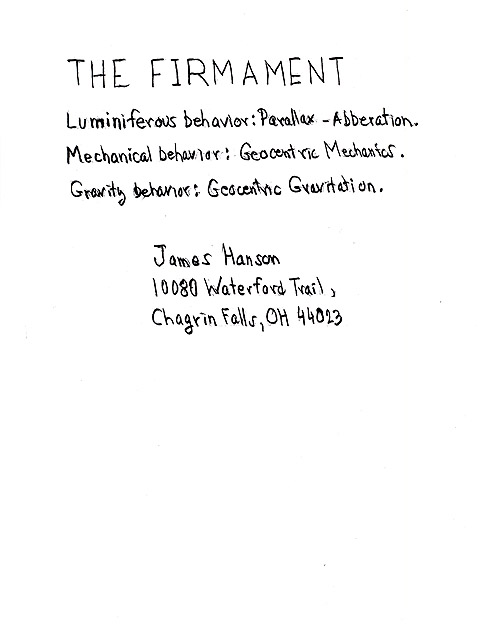 THE FIRMAMENT
Luminiferous behavior: Parallax - Abberation.
Mechanical behavior: Geocentric Mechanics.
Gravity behavior: Geocentric Gravitation.
James Hanson
10080 Waterford Trail,
Chagrin Falls, OH 44023